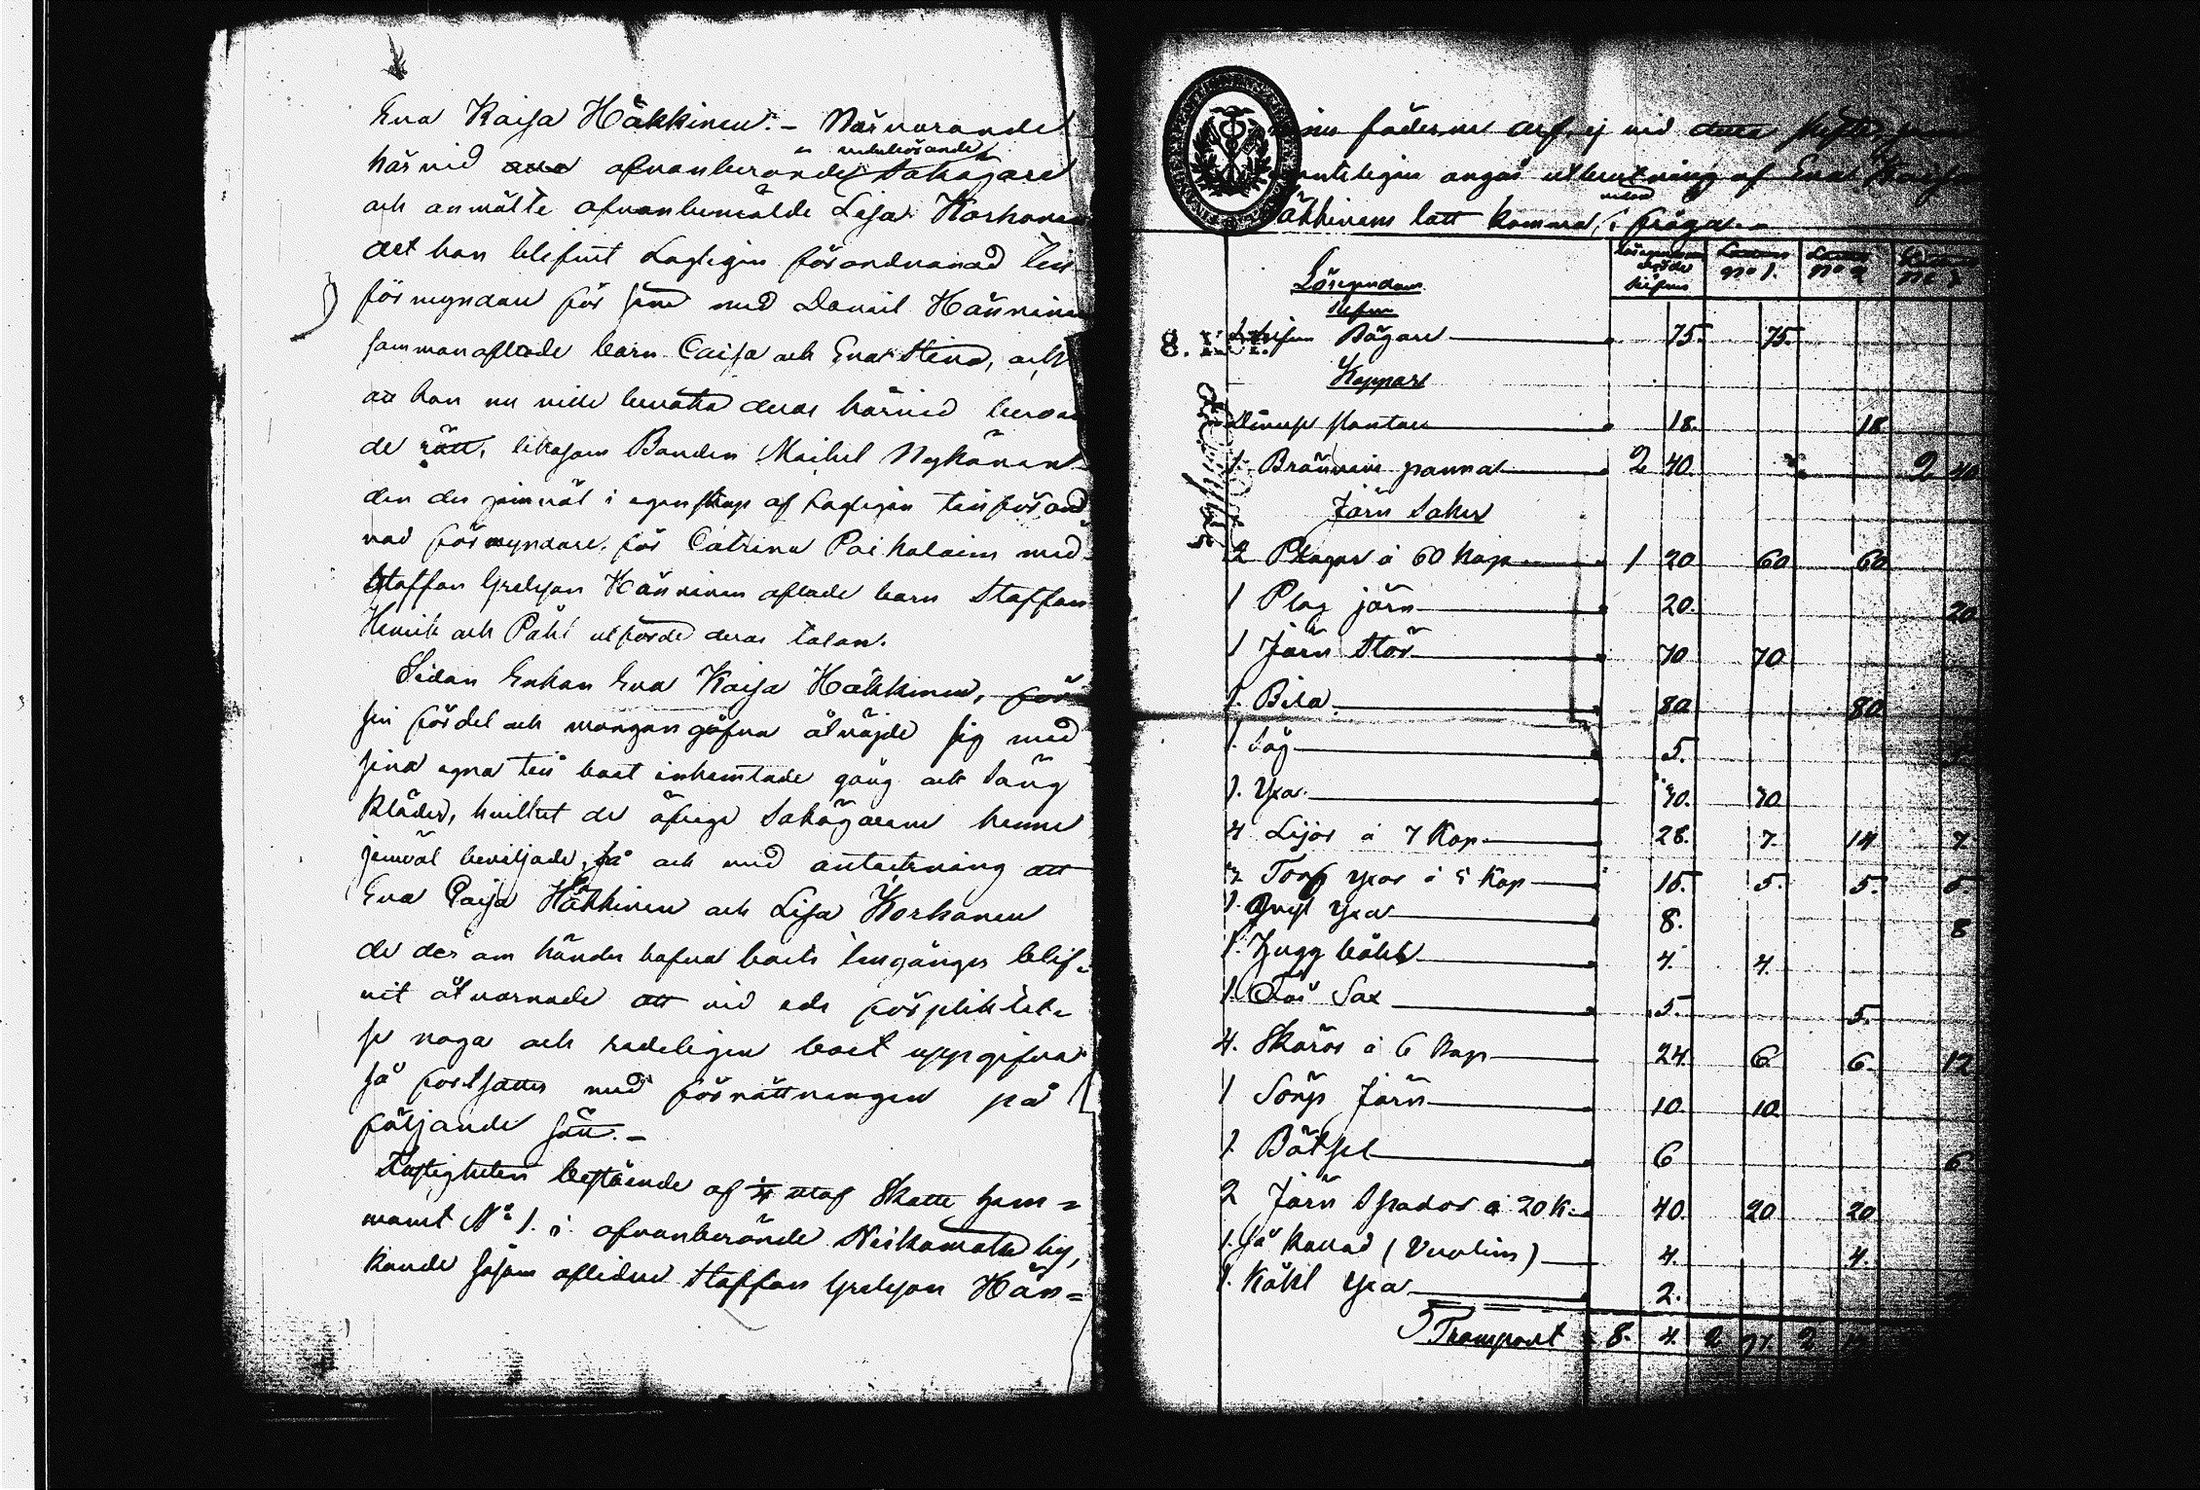 Eva Kaisa Häkkinen. – Närvarande
vederbörande
härvid ofvanberörde Sakägare
och anmälte ofvanbemälde Lisa Korhonen
att han blifvit Lagligen förordnanad till
förmyndare för sine med Daniel Hänninen
sammanaflade barn Caisa och Eva Stina, och
att han nu ville bevaka deras härvid beroen
de rätt, likasom Bonden Maihel Nykänen
den der jemväl i egenskap af Lagligen tillförord
nad förmyndare för Catrina Paihalain med
Staffan Grelsson Hänninen aflade barn Staffan
Henrik och Påhl utförde deras talan.
Sedan Enkan Eva Kaisa Häkkinen, för
sin fördel och morgongåfva åtnöjde sig med
sina egna till boet inhemtade gång och Säng
Kläder, hvilket de öfrige Sakägarene henne
jemväl beviljade, så och med anteckning att
Eva Caisa Häkkinen och Lisa Korhonen
de der om händer hafva boets tillgångar blif-
vit åtvarnade att vid eds förpliktel-
se noga och redeligen boet uppgifva
så fortsattes med förrättningen på
följande sätt. –
Fastigheten bestående af 1/4 Skatte hem=
mant No 1. i ofvanberörde Neikamoka by,
Kande såsom aflidne Staffan Grelsson Hän=
sine fäderne arf, ej vid detta skifte,
angår utbrutning af Eva Kaisa
Häkkinens lott komma i fråga. –
Lösegendom
No 1. No 2 No 3
Lösegendom
Silfver
1 Silfver Bägare 75. 75.
Koppar
18. 18
1. Brännvins panna 2 40. 2 40
Järn Saker
2 Plogar à 60 kop 1 20 60 60
1 Plog järn 20. 20
1 Järn Stör 70 70
1. Bila 80 80
1. Såg 5.
1. Yxa 70. 70
4 Lijor à 7 Kop 28. 7. 14 7.
3. Torp yxor à 5 Kop 15. 5. 5. 5
1. Yxa 8. 8
1. Hugg 4. 4.
1. Får Sax 5. 5.
4. Skäror à 6 kop 24. 6. 6. 12
1 Sörp Järn 10 10
1. Bätsel 6 6
2 Järn Spador à 20 K. 40. 20 20
1. (Vuolin) 4. 4.
1. Yxa 2.
Transport 8. 4. 2 2